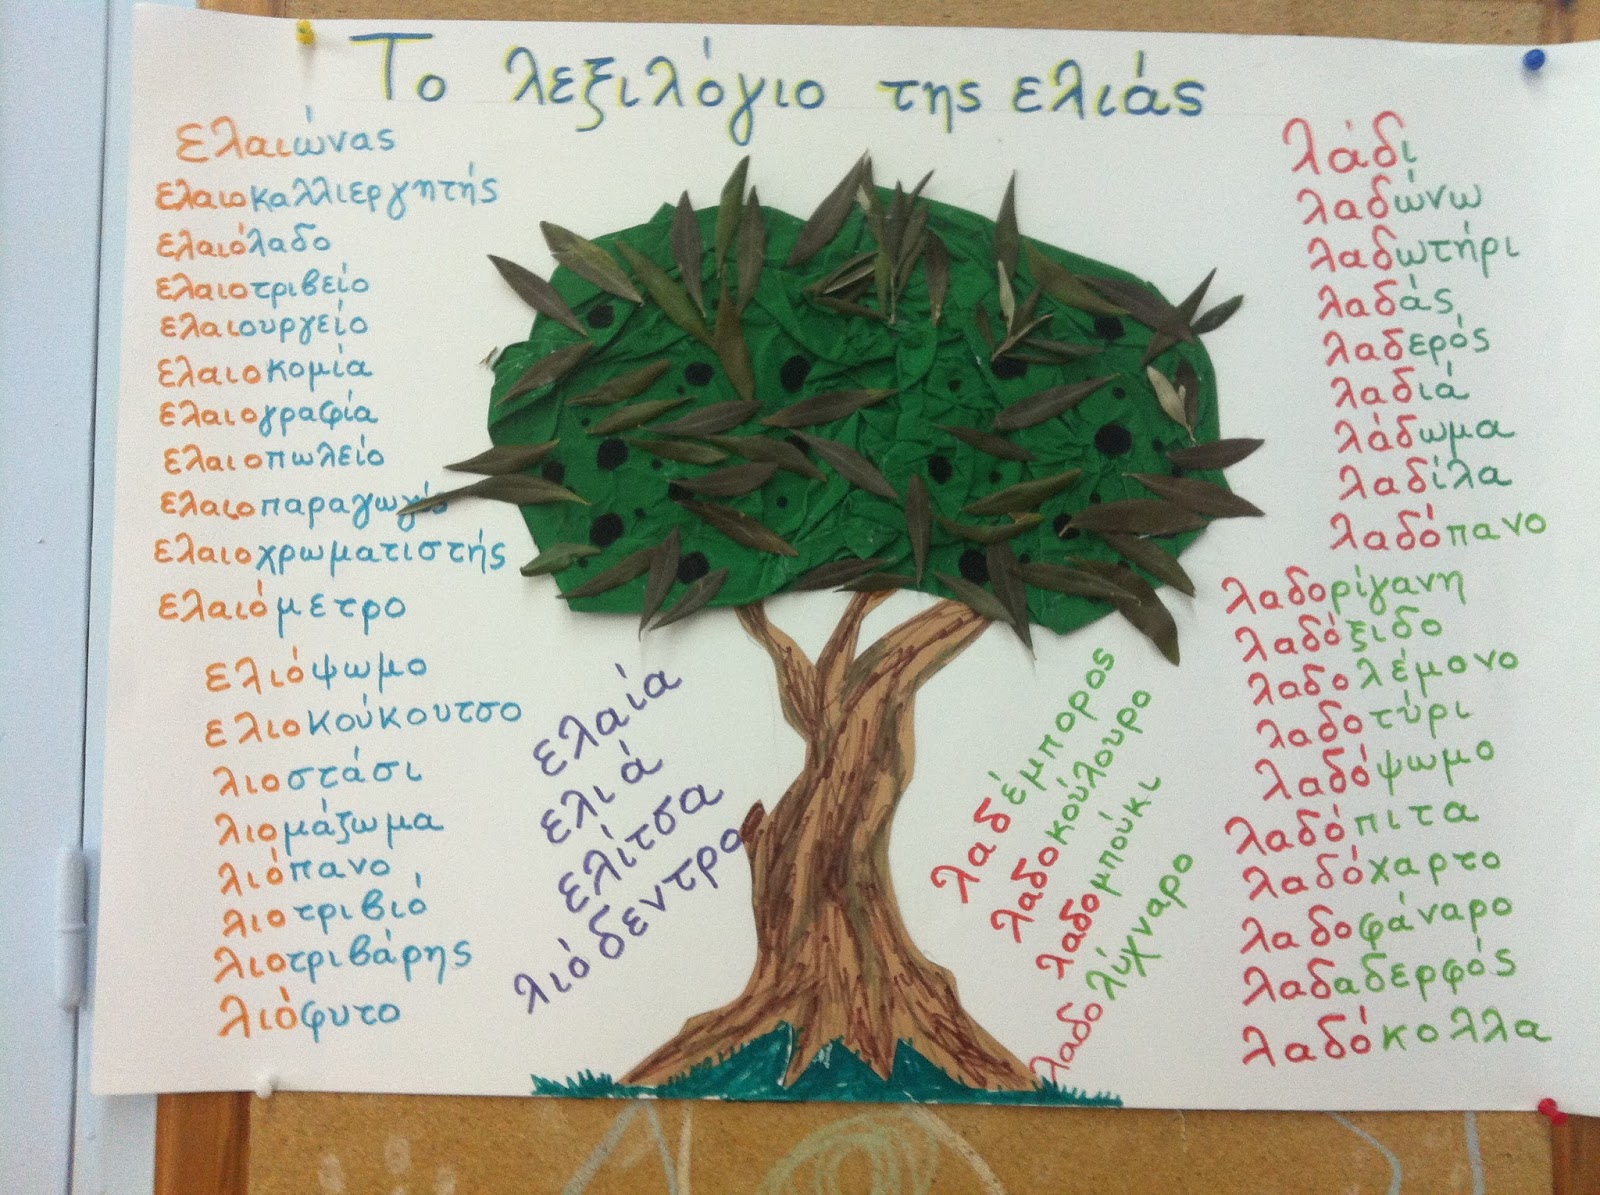 Το λεξιλόγιο της ελιάς
ελαιώνας
ελαιοκαλλιεργητής
ελαιόλαδο
ελαιοτριβείο
ελαιουργείο
ελαιοκομία
ελαιογραφία
ελαιοπωλείο
ελαιοπαραγωγό
ελαιοχρωματιστής
ελαιόμετρο
ελιόψωμο
ελιοκούκουτσο
λιοστάσι
λιομάζωμα
λιόπανο
λιοτριβιό
λιοτριβάρης
λιόφυτο
ελαία
ελιά
ελίτσα
λιόδεντρο
λαδέμπορος
λαδοκούλουρο
λαδομπούκι
λαδολύχναρο
λάδι
λαδώνω
λαδωτήρι
λαδάς
λαδερός
λαδιά
λάδωμα
λαδίλα
λαδόπανο
λαδορίγανη
λαδόξιδο
λαδολέμονο
λαδοτύρι
λαδόψωμο
λαδόπιτα
λαδόχαρτο
λαδοφάναρο
λαδαδερφός
λαδόκολλα